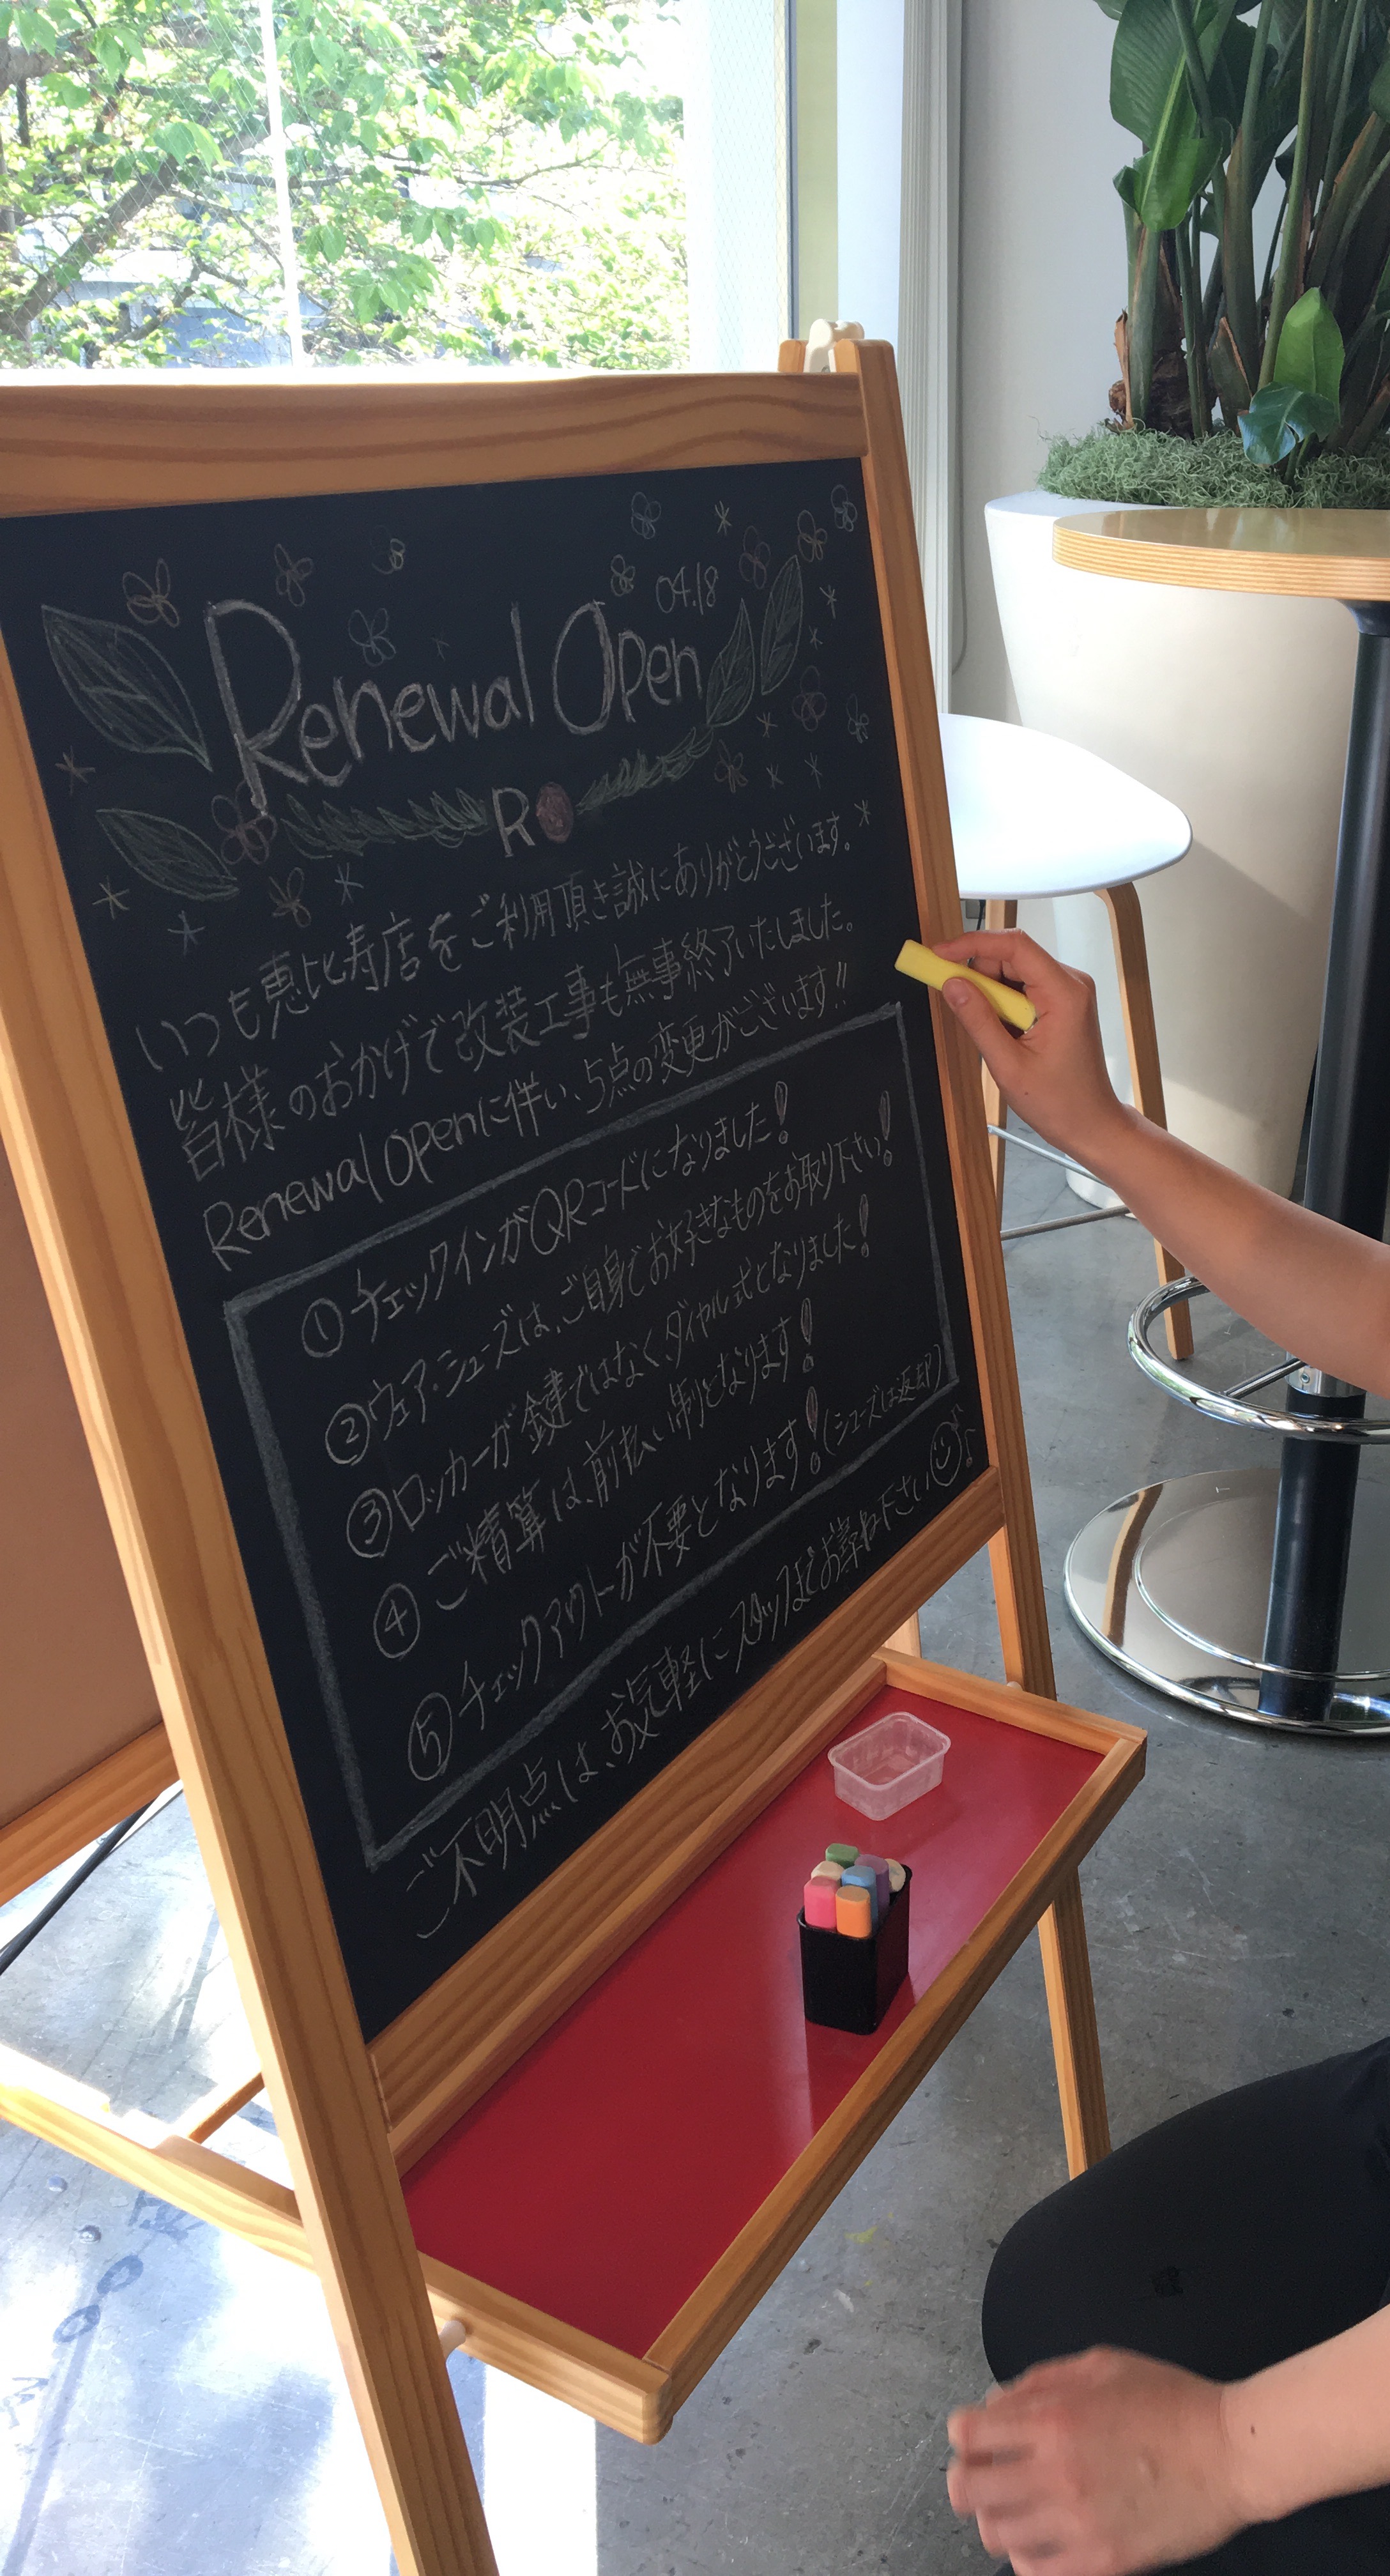 04.18
Renewal Open
R
いつも恵比寿店をご利用頂き誠にありがとうございます。
皆様のおかげで改装工事も無事終了いたしました。
Renewal Openに伴い、5点の変更がございます!!
① チェックインがQRコードになりました!
② ウェア・シューズは、ご自身でお好きなものをお取り下さい!
③ ロッカーが鍵ではなく、ダイヤル式となりました!
④ ご精算は、前払い制となります!
⑤ チェックアウトが不要となります!(シューズは返却)
ご不明点は、お気軽にスタッフまでお尋ね下さい